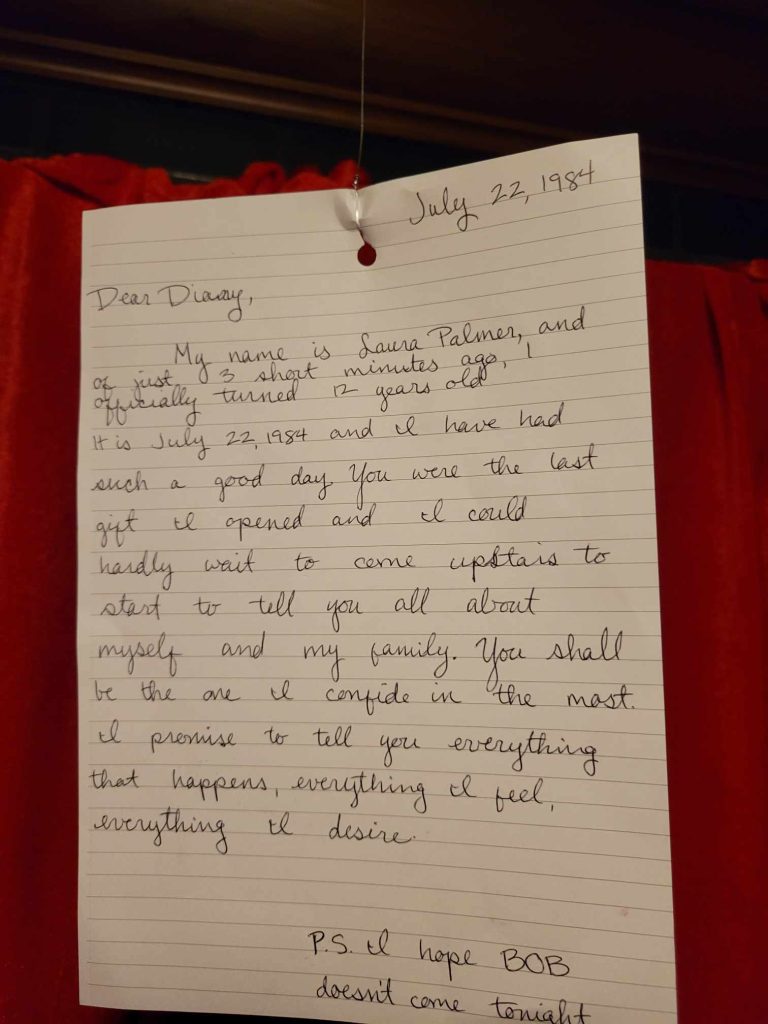 July 22, 1984
Dear Diary,
My name is Laura Palmer, and
of just 3 short minutes ago, I
officially turned 12 years old
It is July 22, 1984 and I have had
such a good day. You were the last
gift I opened and I could
hardly wait to come upstais to
start to tell you all about
myself and my family. You shall
be the one I confide in the most.
I promise to tell you everything
that happens, everything I feel,
everything I desire.
P.S. I hope BOB
doesn't come tonight